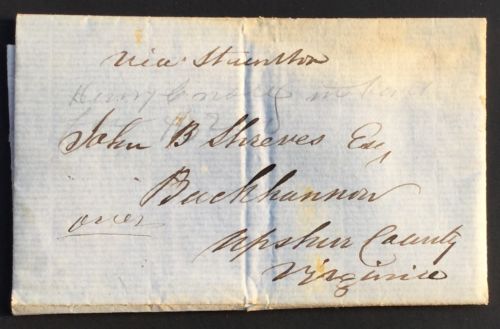 via Staunton
Henry
John B Shreves Esq
Buckhannon
over
Upshur County
Virginia